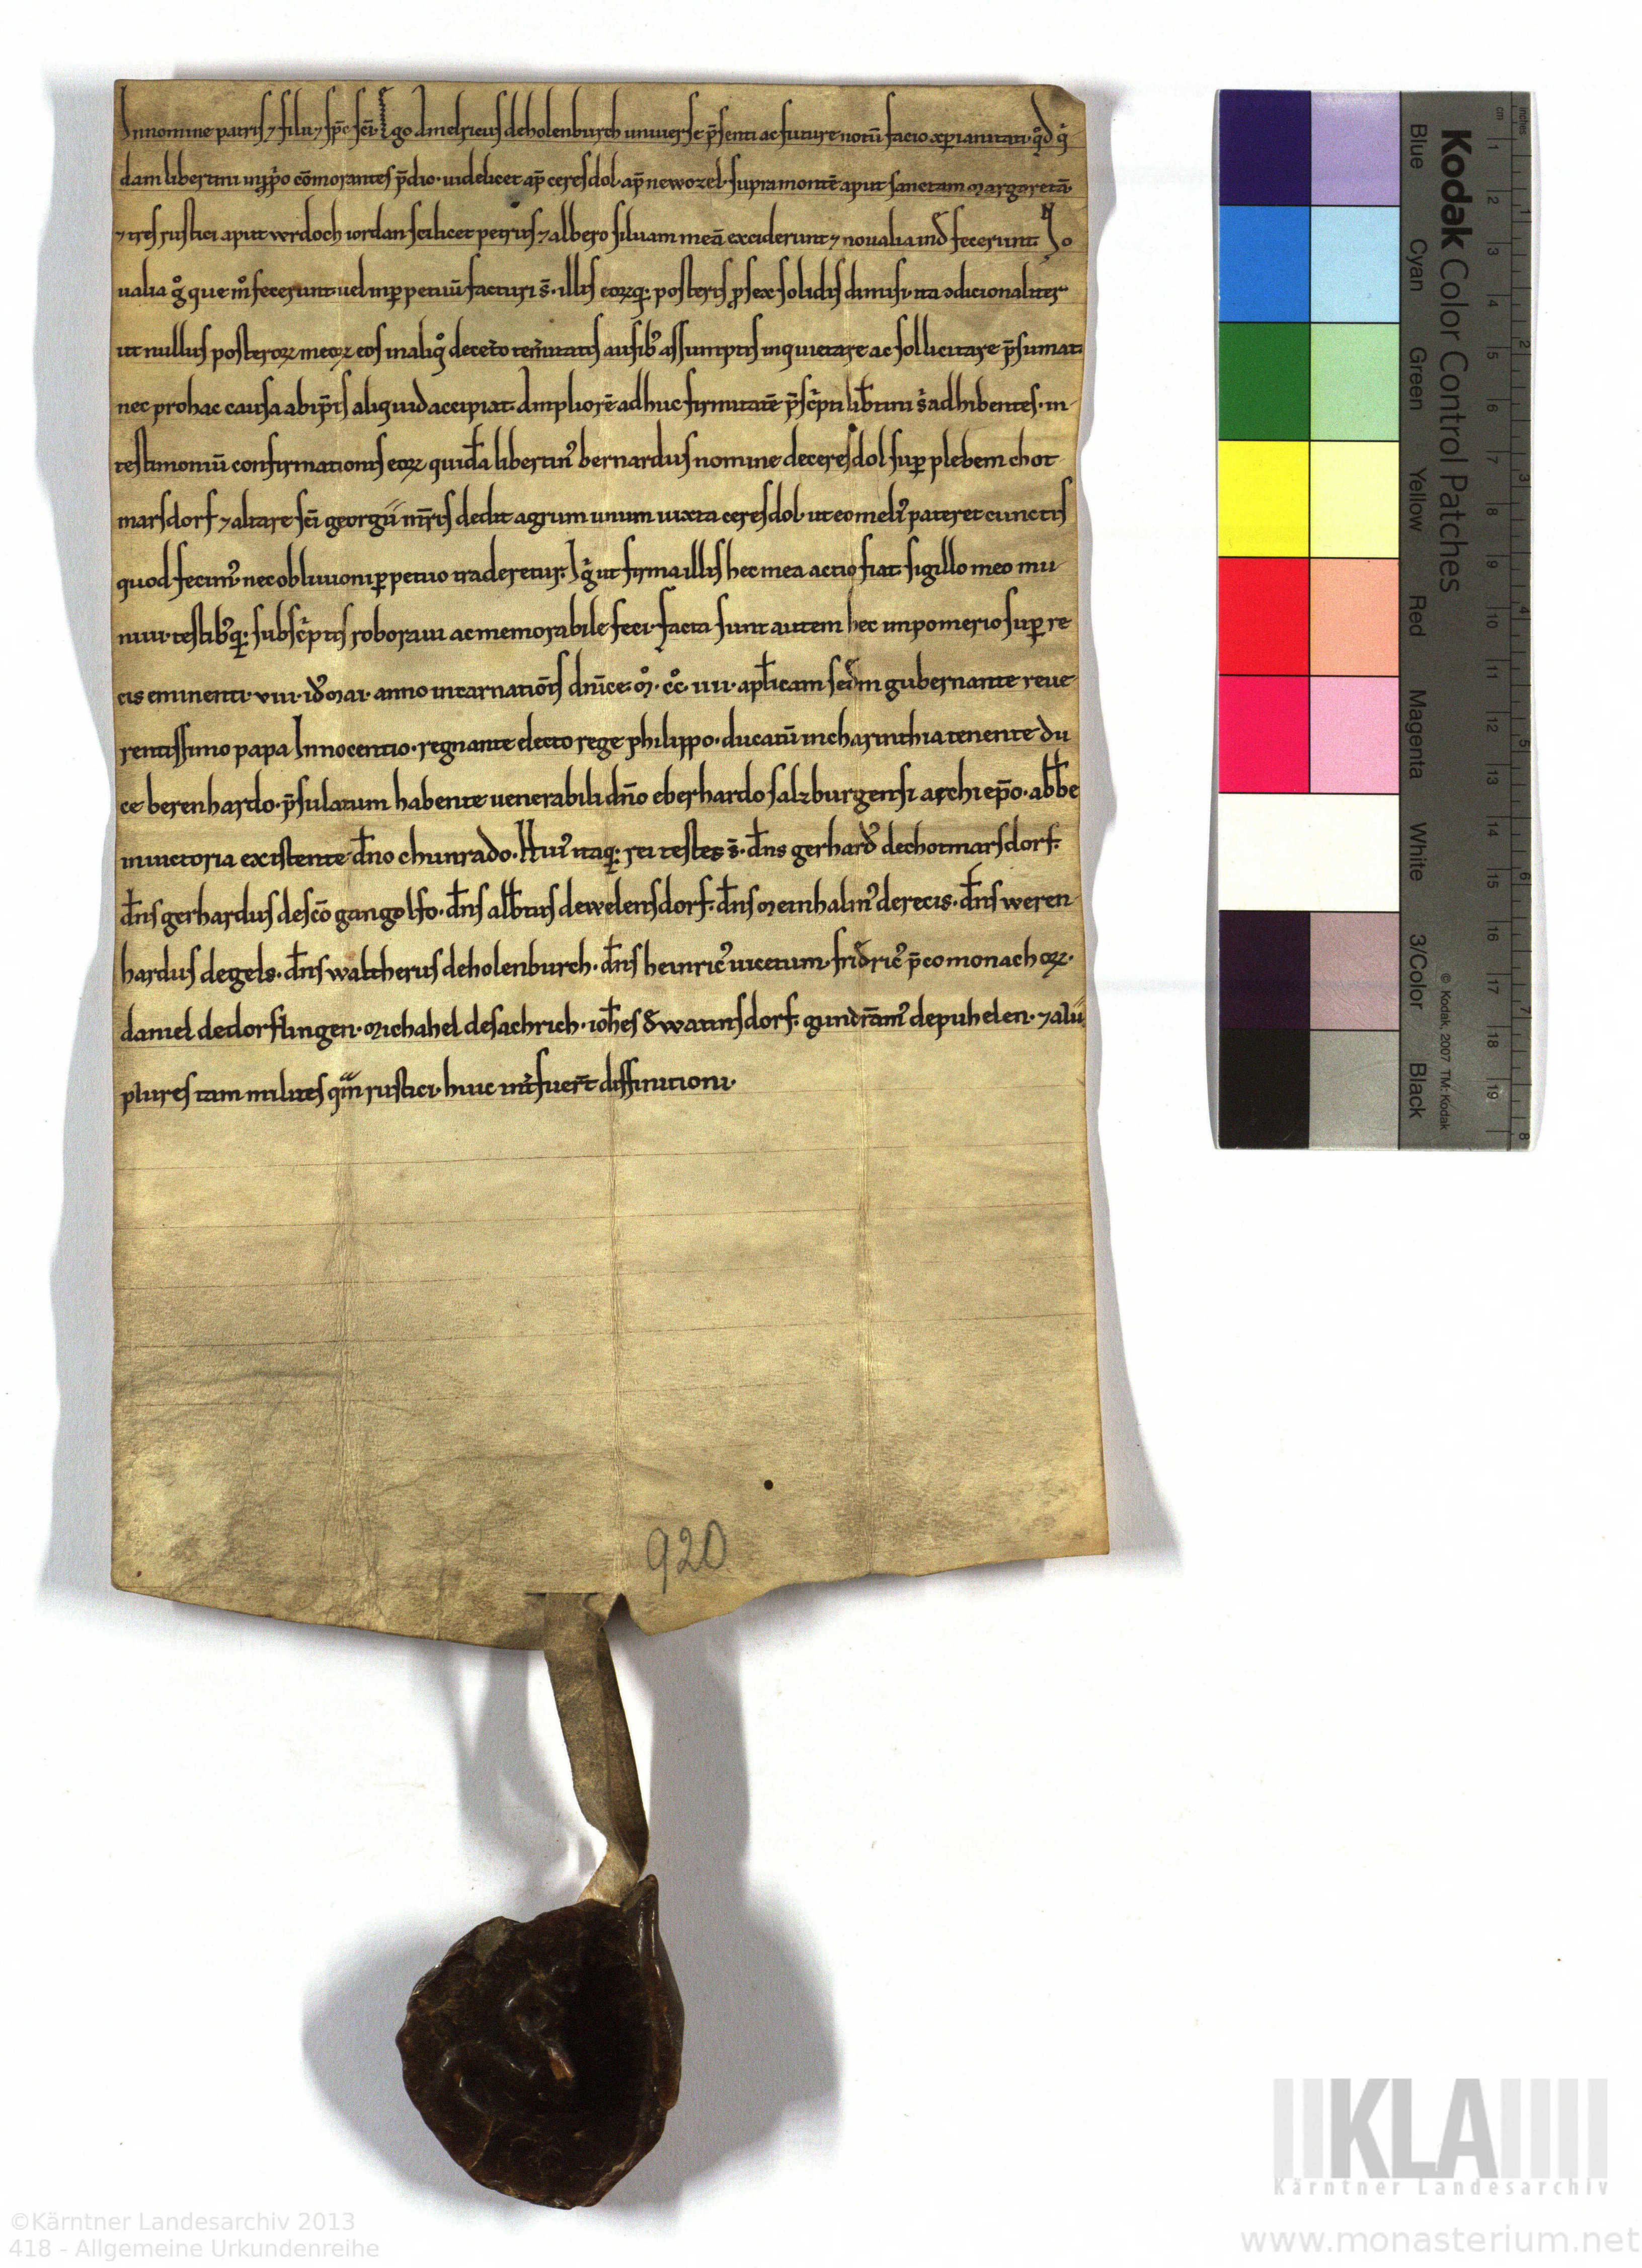 In nomine patris ⁊ filii ⁊ sp̄c sc̄i. Ego Amelricus de holenburch uniuerse p̄senti ac future notū facio xp̄ianitati. qd̊ qͥ
dam libertini in pͥo cōmorantes p̄dio. uidelicet ap̄ ceresdol. ap̄ newozel. supra montē aput sanctam margaretā
⁊ tres rustici aput werdoch iordan scilicet petrus ⁊ albero siluam meā exciderunt ⁊ noualia ind̄ fecerunt. No
ualia gͦ que mͦ fecerunt uel inp̱petuū facturi s̄. illis eoꝝq; posteris ꝓ sex solidis dimisi. ita ↄdicionaliter
ut nullus posteroꝝ meoꝝ eos in aliqͦ decet̄o tem̄itatis ausibꝰ assumptis inquietare ac sollicitare p̄sumat.
nec pro hac causa ab ip̄is aliquid accipiat. Ampliorē adhuc firmitatē p̄scͥpti lib̄tini s̄ adhibentes. in
testimoniū confirmationis eoꝝ quidā libertinꝰ bernardus nomine de ceresdol sup̱ plebem chot
marsdorf ⁊ altare sc̄i georgii mr̄is dedit agrum unum iuxta ceresdol. ut eo meliꝰ pateret cunctis
quod fecimꝰ nec obliuioni p̱petuo traderetur. Igͥ ut firma illis hec mea actio fiat sigillo meo mu
niui. testibꝰq; subscͥptis roboraui ac memorabile feci. facta sunt autem hec in pomerio sup̱ re
cis eminenti. viii. idꝰ mai. anno incarnatiōis dn̄ice. m̊. cc̊. iiii. apl̄icam sedm̄ gubernante reue
rentissimo papa Innocentio. regnante electo rege philippo. ducatū in charinthia tenente du
ce berenhardo. p̄sulatum habente uenerabili dn̄o eberhardo salzburgensi archiep̄o. abb̄e
in uictoria existente dn̄o chunrado. Huiꝰ itaq; rei testes s̄. dn̄s gerhardꝰ de chotmarsdorf.
dn̄s gerhardus de scō gangolfo. dn̄s alb̄tus de welensdorf. dn̄s meinhalmꝰ de recis. dn̄s weren
hardus de gels. dn̄s waltherus de holenburch. dn̄s heinricꝰ uicetum. fridricꝰ p̄co monachoꝝ.
daniel de dorflingen. michahel de sachrich. ioh̄es d̄ watinsdorf. gundrāmꝰ de puhelen. ⁊ alii
plures tam milites qm̄ rustici. huic int̄fuer̄t diffinitioni.
920
Kodak Color Control Patches
Blue Cyan Green Yellow Red Magenta White 3/Color Black
© Kodak, 2007 TM: Kodak
cm 1 2 3 4 5 6 7 8 9 10 11 12 13 14 15 16 17 18 19
inches 1 2 3 4 5 6 7 8
KLA
Kärntner Landesarchiv
©Kärntner Landesarchiv 2013
418 - Allgemeine Urkundenreihe
www.monasterium.net